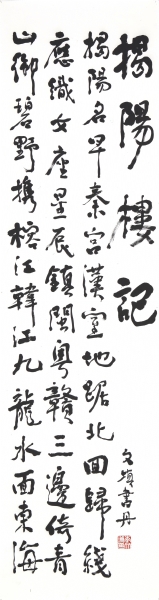 揭陽樓記
揭陽名早秦宫漢室地踞北回歸綫
應織女座星辰鎮閩粵贛三邊倚青
山御碧野携榕江韓江九龍水面東海
文嶺書丹